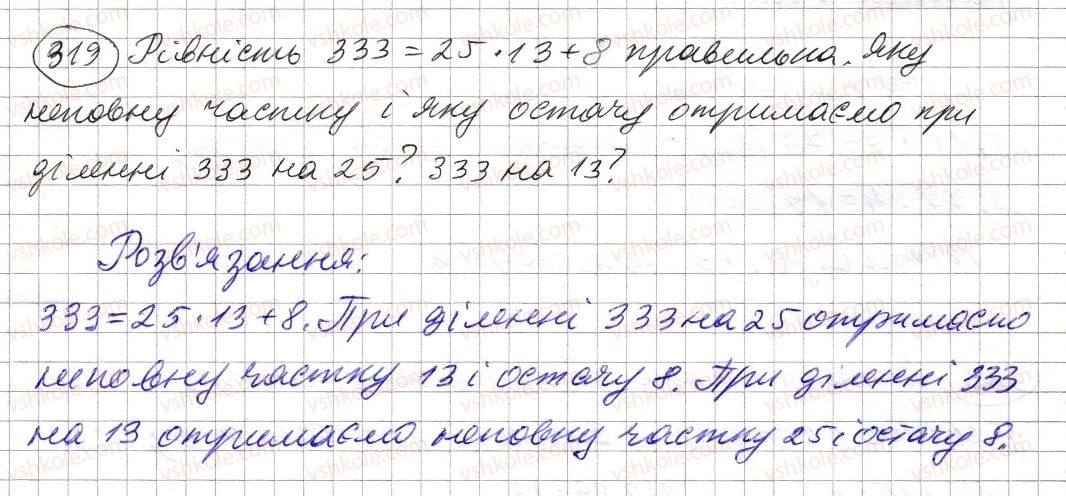 319 Рівність 333 = 25 · 13 + 8 правильна. Яку
неповну частку і яку остачу отримаємо при
діленні 333 на 25? 333 на 13?
Розв'язання:
333 = 25 · 13 + 8. При діленні 333 на 25 отримаємо
неповну частку 13 і остачу 8. При діленні 333
на 13 отримаємо неповну частку 25 і остачу 8.